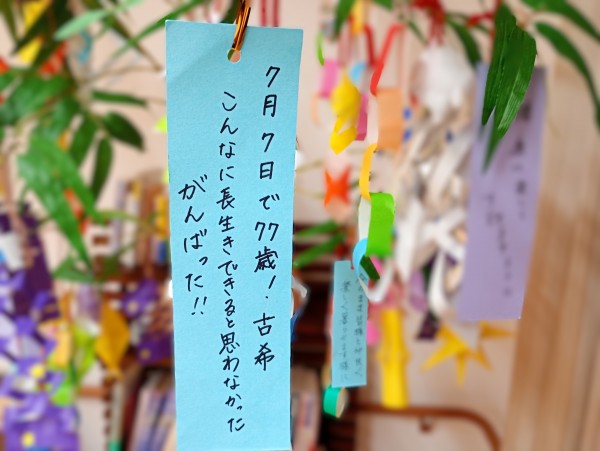 7月7日で77歳!古希
こんなに長生きできると思わなかった
がんばった!!